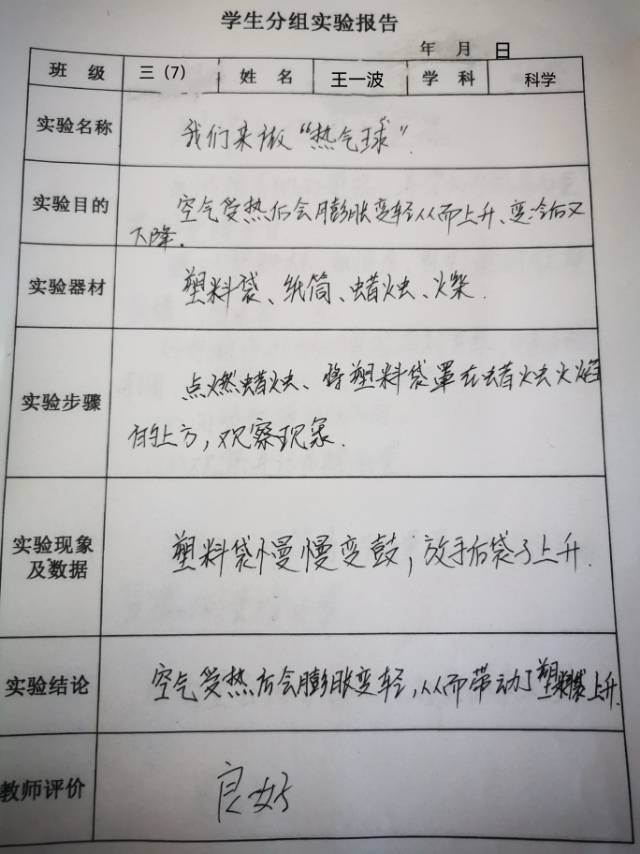 学生分组实验报告
年 月 日
班 级 三（7） 姓 名 王一波 学 科 科学
实验名称 我们来做“热气球”.
实验目的 空气受热后会膨胀变轻从而上升、变冷后又
下降.
实验器材 塑料袋、纸筒、蜡烛、火柴.
实验步骤 点燃蜡烛、将塑料袋罩在蜡烛火焰
的上方，观察现象.
实验现象
及数据
塑料袋慢慢变鼓；放手后袋子上升.
实验结论 空气受热后会膨胀变轻，从而带动了塑料袋上升.
教师评价 良好